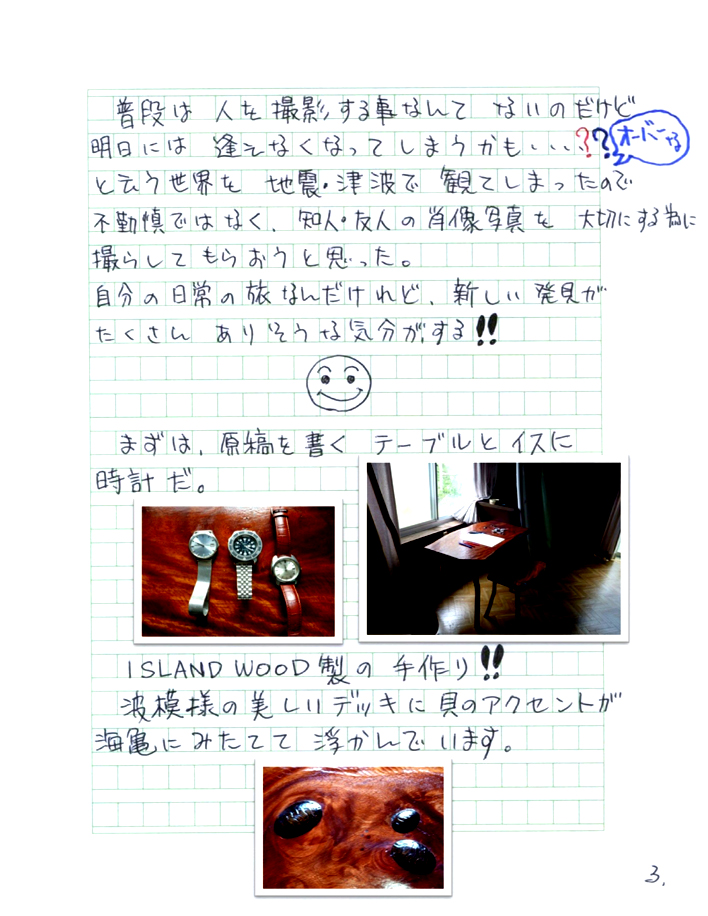 普段は 人を 撮影する事なんて ないのだけど
明日には 逢えなくなってしまうかも・・・??
オーバーかな
と云う世界を 地震・津波で 観てしまったので
不勤慎ではなく、知人・友人の肖像写真を 大切にする為に
撮らしてもらおうと思った。
自分の日常の旅なんだけれど、新しい発見が
たくさん ありそうな気分がする!!
まずは、原稿を書く テーブルとイスに
時計だ。
ISLAND WOOD製の 手作り!!
波模様の美しいデッキに貝のアクセントが
海亀にみたてて 浮かんでいます。
3.